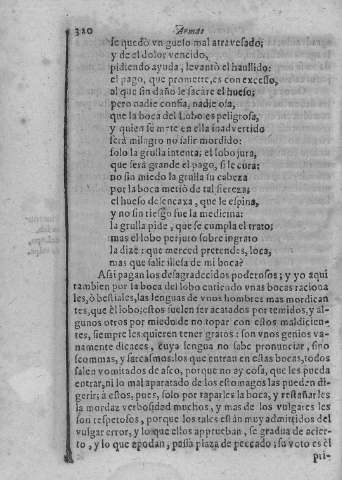 320 Armas
se quedò vn guesso mal atravesado;
y de el dolor vencido,
pidiendo ayuda, levantò el haullido:
el pago, que promette, es con excesso,
al que sin daño le sacàre el hueso;
pero nadie confia, nadie osa,
que la boca del Lobo es peligrosa,
y quien se mete en ella inadvertido
serà milagro no salir mordido:
solo la grulla intenta; el lobo jura,
que serà grande el pago, si le cura:
no sin miedo la grulla su cabeza
por la boca metiò de tal fiereza;
el hueso desencaxa, que le espina,
y no sin riesgo fue la medicina:
la grulla pide, que se cumpla el trato;
mas el lobo perjuro sobre ingrato
la dize: que merced pretendes, loca,
mas que salir illesa de mi boca?
Assi pagan los desagradecidos poderosos; y yo aqui
tambien por la boca del lobo entiendo vnas bocas raciona
les, ò bestiales, las lenguas de vnos hombres mas mordican
tes, que el lobo; estos suelen ser acatados por temidos, y al-
gunos otros por miedo de no topar con ellos maldicien-
tes, siempre les quieren tener gratos: son vnos genios va-
namente dicaces, cuya lengua no sabe pronunciar, sino
scommas, y sarcasmos: los que entran en estas bocas, todos
salen vomitados de asco, porque no ay cosa, que les pueda
entrar, ni lo mal aparatado de los estomagos las pueden di-
gerir; à estos, pues, solo por taparles la boca, y restañarles
la mordaz verbosidad muchos, y mas de los vulgares les
son respetosos, porque los tales estàn muy admitidos del
vulgar error, y lo que ellos apprueban, se gradua de acier-
to, y lo que apodan, passa plaza de peccado; su voto es el
pri-